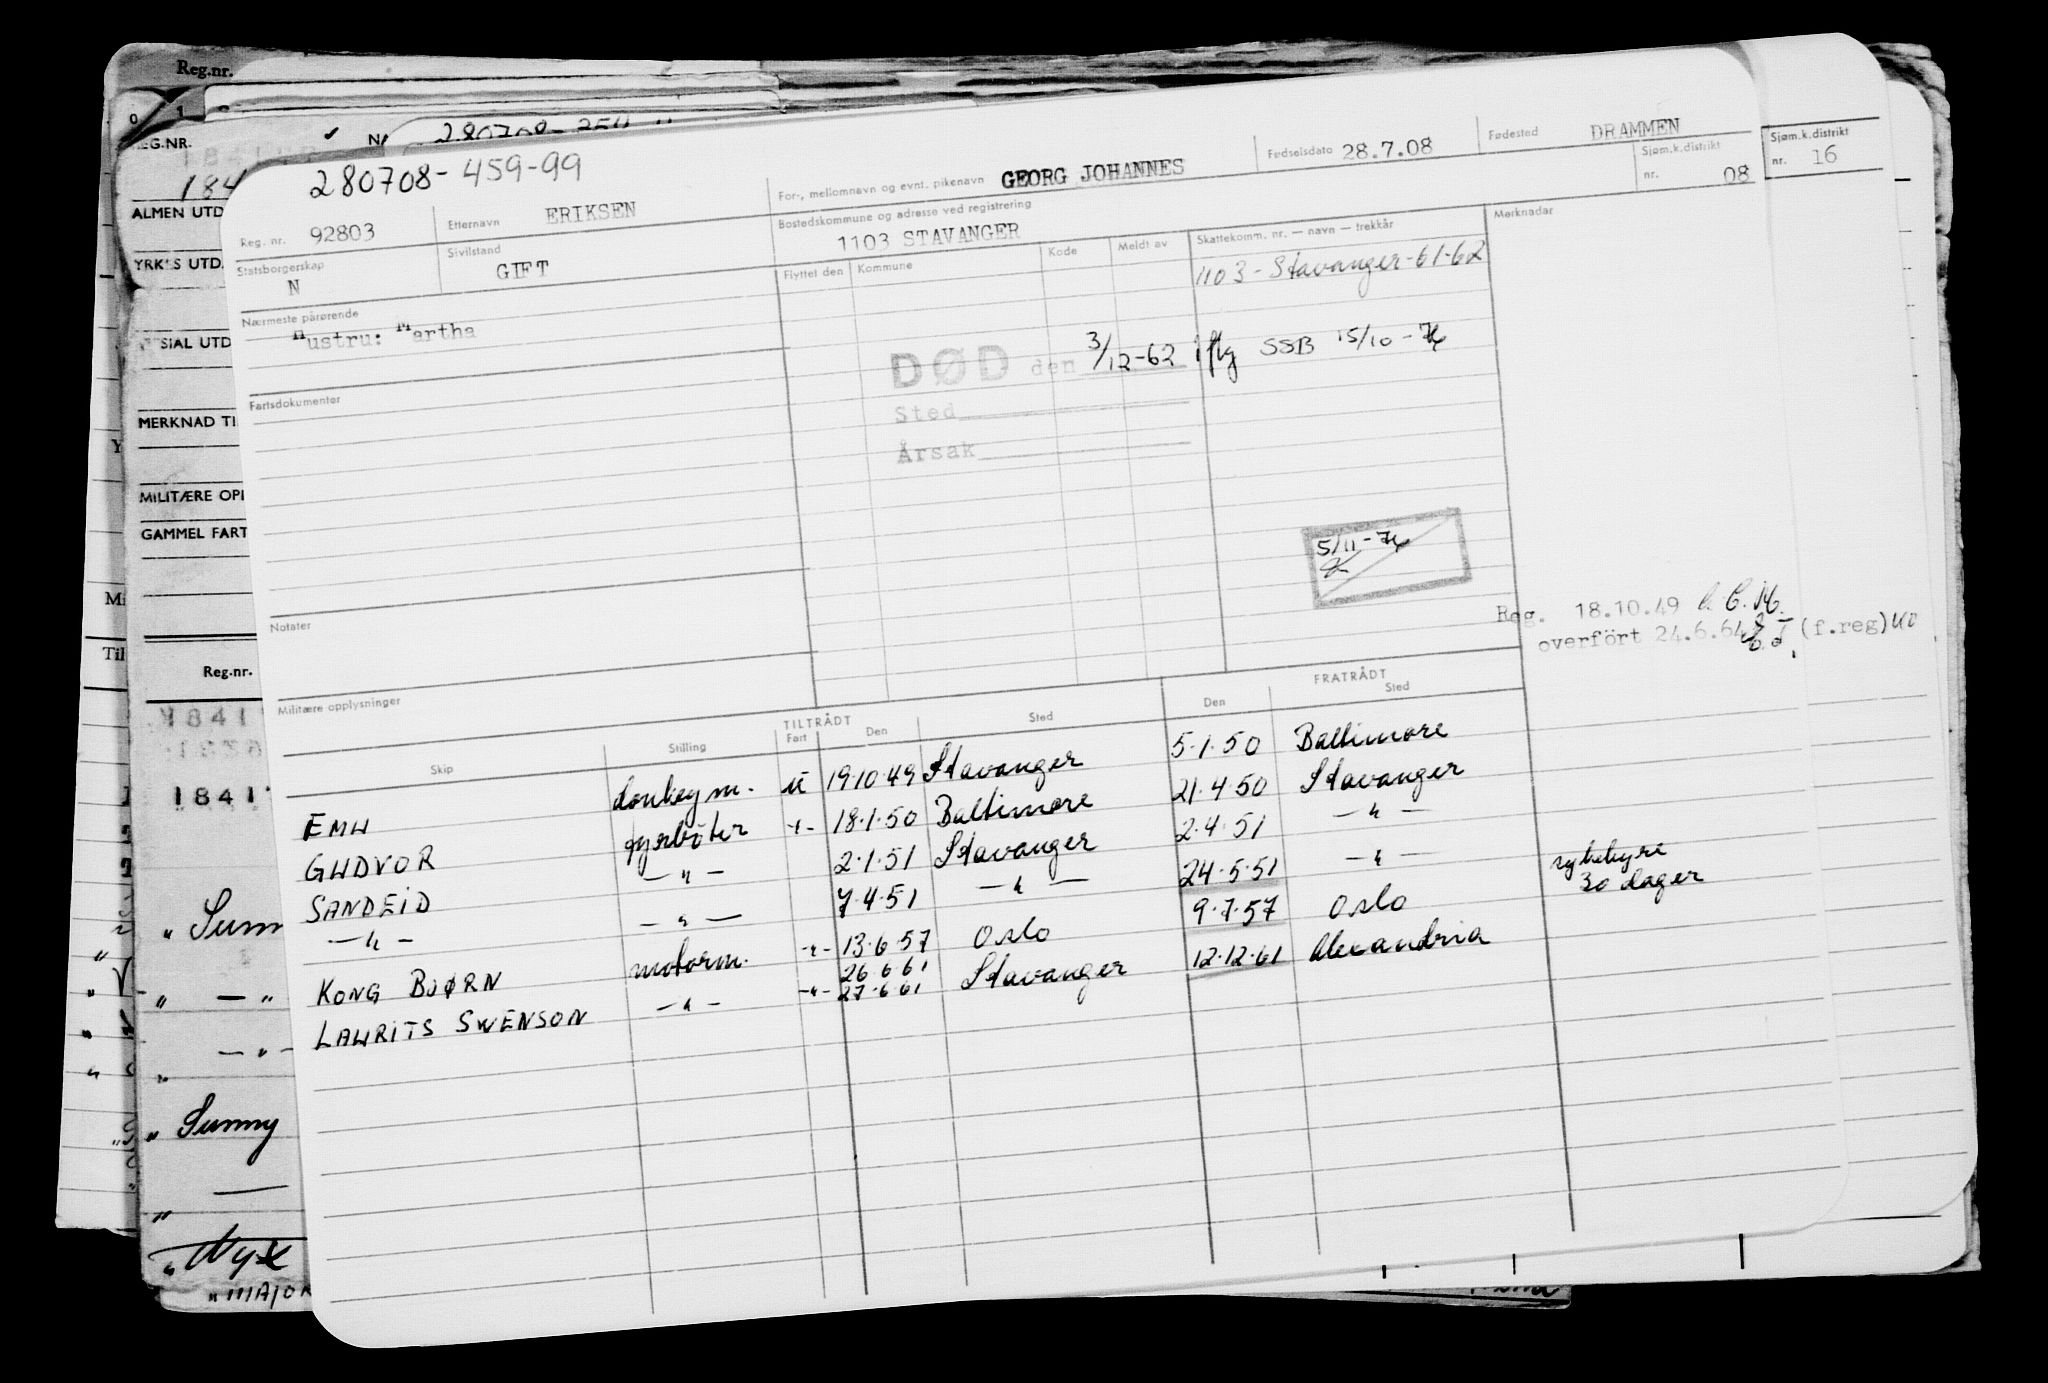 Reg.nr.
280708-459-99
Reg. nr. 92803
Etternavn ERIKSEN
For-, mellomnavn og evnt. pikenavn GEORG JOHANNES
Fødselsdato 28.7.08
Fødested DRAMMEN
Sjøm.k.distrikt nr. 16
Statsborgerskap N
Sivilstand GIFT
Bostedskommune og adresse ved registrering 1103 STAVANGER
Sjøm.k.distrikt nr. 08
Nærmeste pårørende
Hustru: Martha
Flyttet den Kommune Kode Meldt av Skattekomm. nr. — navn — trekkår Merknadar
1103 - Stavanger - 61-62
DØD den 3/12-62 iflg SSB 15/10-76
Sted
Årsak
Fartsdokumenter
5/11-76
Notater
Reg. 18.10.49
overfört 24.6.64 (f.reg)
Militære opplysninger
TILTRÅDT FRATRÅDT
Skip Stilling Fart Den Sted Den Sted
EMU donkeym. U 19.10.49 Stavanger 5.1.50 Baltimore
GUDVOR fyrbøter -"- 18.1.50 Baltimore 21.4.50 Stavanger
SANDEID —"— 2.1.51 Stavanger 2.4.51 —"—
—"— —"— 7.4.51 —"— 24.5.51 —"— sykehyre 30 dager
KONG BJØRN motorm. -"- 13.6.57 Oslo 9.7.57 Oslo
LAURITS SWENSON —"— -"- 26.6.61 27.6.61 Stavanger 12.12.61 Alexandria
REG.NR.
ALMEN UTD
YRKES UTD.
SPESIAL UTD
MERKNAD TI
MILITÆRE OPL
GAMMEL FART
Reg.nr.
1841
Sunny